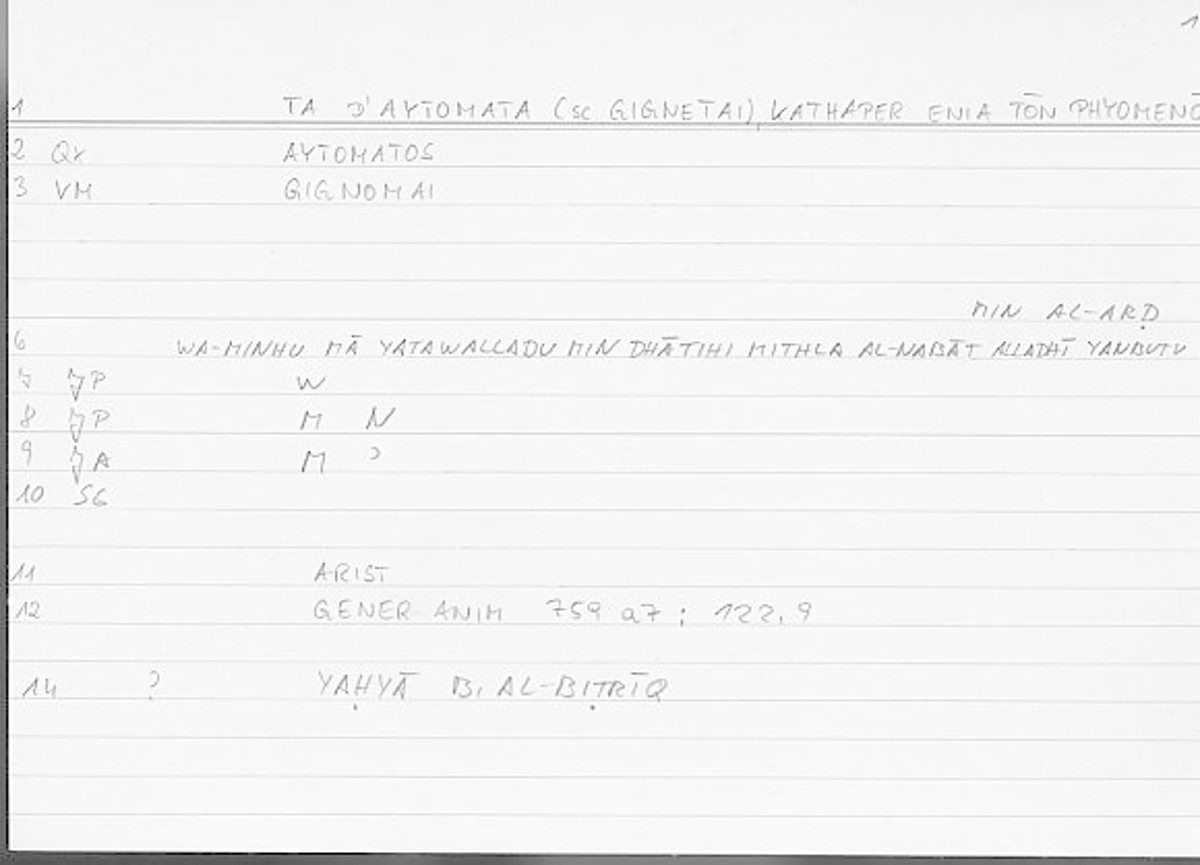 1
1 TA D'AYTOMATA (SC GIGNETAI), KATHAPER ENIA TŌN PHYOMENŌ
2 Qx AYTOMATOS
3 VM GIGNOMAI
MIN AL-ARḌ
6 WA-MINHU MĀ YATAWALLADU MIN DHĀTIHI MITHLA AL-NABĀT ALLADHĪ YANBUTU
7 P W
8 P M N
9 A M
10 SG
11 ARIST
12 GENER ANIM 759 a7 ; 122,9
14 ? YAḤYĀ B. AL-BIṬRĪQ